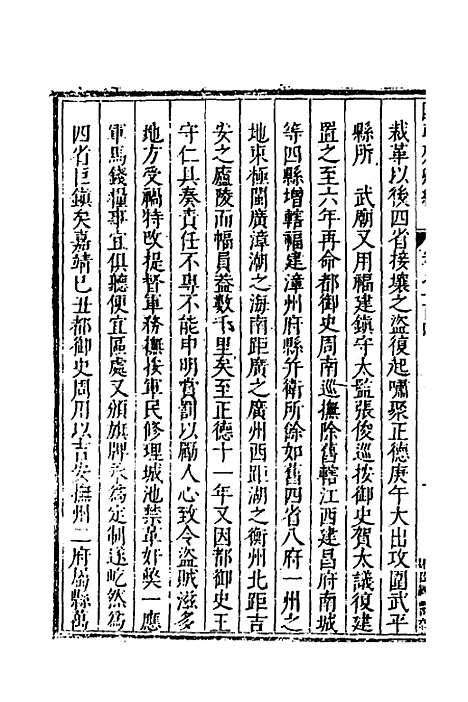 裁革以後四省接壤之盜復起嘯聚正德庚午大出攻圍武平
縣所　武廟又用福建鎮守太監張俊巡按御史賀太議復建
置之至六年再命都御史周南巡撫除舊轄江西建昌府南城
等四縣增轄福建漳州府縣并衛所餘如舊四省八府一州之
地東極閩廣漳潮之海南距廣之廣州西距湖之衡州北距吉
安之廬陵而幅員蓋數千里矣至正德十一年又因都御史王
守仁具奏責任不專不能申明賞罰以勵人心致令盜賊滋多
地方受禍特改提督軍務撫按軍民修理城池禁革奸獘一應
軍馬錢糧事宜俱聽便宜區處又頒旗牌永為定制遂屹然為
四省巨鎮矣嘉靖己丑都御史周用以吉安撫州二府屬縣萬